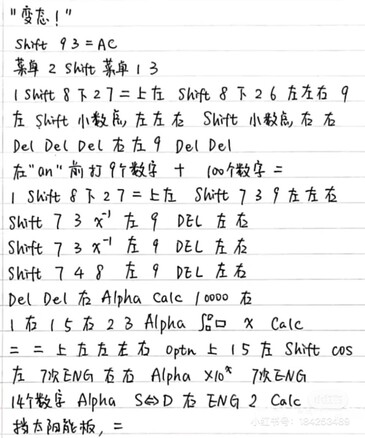 "变态！"
Shift 93=AC
菜单 2 Shift 菜单 1 3
1 Shift 8 下 2 7 = 上左 Shift 8 下 2 6 左左右 9
左 Shift 小数点, 左左右 Shift 小数点, 右右
Del Del Del 右左 9 Del Del
在"an"前打9个数字 + 100个数字 =
1 Shift 8 下 2 7 = 上左 Shift 7 3 9 左左右
Shift 7 3 x⁻¹ 左 9 DEL 左右
Shift 7 3 x⁻¹ 左 9 DEL 左右
Shift 7 4 8 左 9 DEL 左右
Del Del 右 Alpha Calc 10000 右
1 右 1 5 右 2 3 Alpha ∫□ x Calc
= = 上左左左右 optn 上 1 5 左 Shift cos
左 7次ENG 右右 Alpha ×10ˣ 7次ENG
14个数字 Alpha S⇔D 右 ENG 2 Calc
挡太阳能板, =
小红书号: 184263489